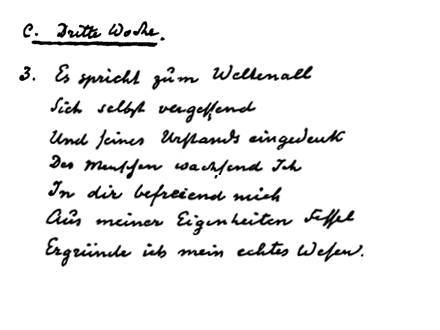 C. Dritte Woche.
3. Es spricht zum Weltenall
Sich selbst vergessend
Und seines Urstands eingedenk
Des Menschen wachsend Ich
In dir befreiend mich
Aus meiner Eigenheiten Fessel
Ergründe ich mein echtes Wesen.